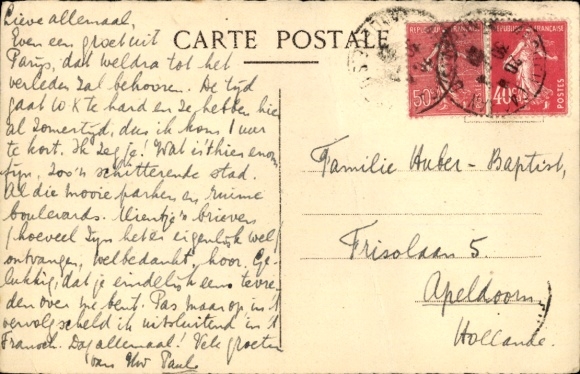 Lieve allemaal,
Even een groet uit
Parijs, dat weldra tot het
verleden zal behooren. De tijd
gaat 10 x te hard en ze hebben hier
al Zomertijd, dus ik kom 1 uur
te kort. Ik zeg je! Wat is 't hier enorm
fijn, zoo'n schitterende stad.
Al die mooie parken en ruime
boulevards. Mientje's brieven
(hoeveel zijn het er eigenlijk wel)
ontvangen, welbedankt, hoor. Ge-
lukkig, dat je eindelijk eens tevre-
den over me bent. Pas maar op in 't
vervolg scheld ik uitsluitend in 't
Fransch. Dag allemaal! Vele groeten
van Uw Paul
CARTE POSTALE
REPUBLIQUE FRANÇAISE
50c
40c
POSTES
Familie Huber-Baptist,
Frisolaan 5.
Apeldoorn
Hollande.